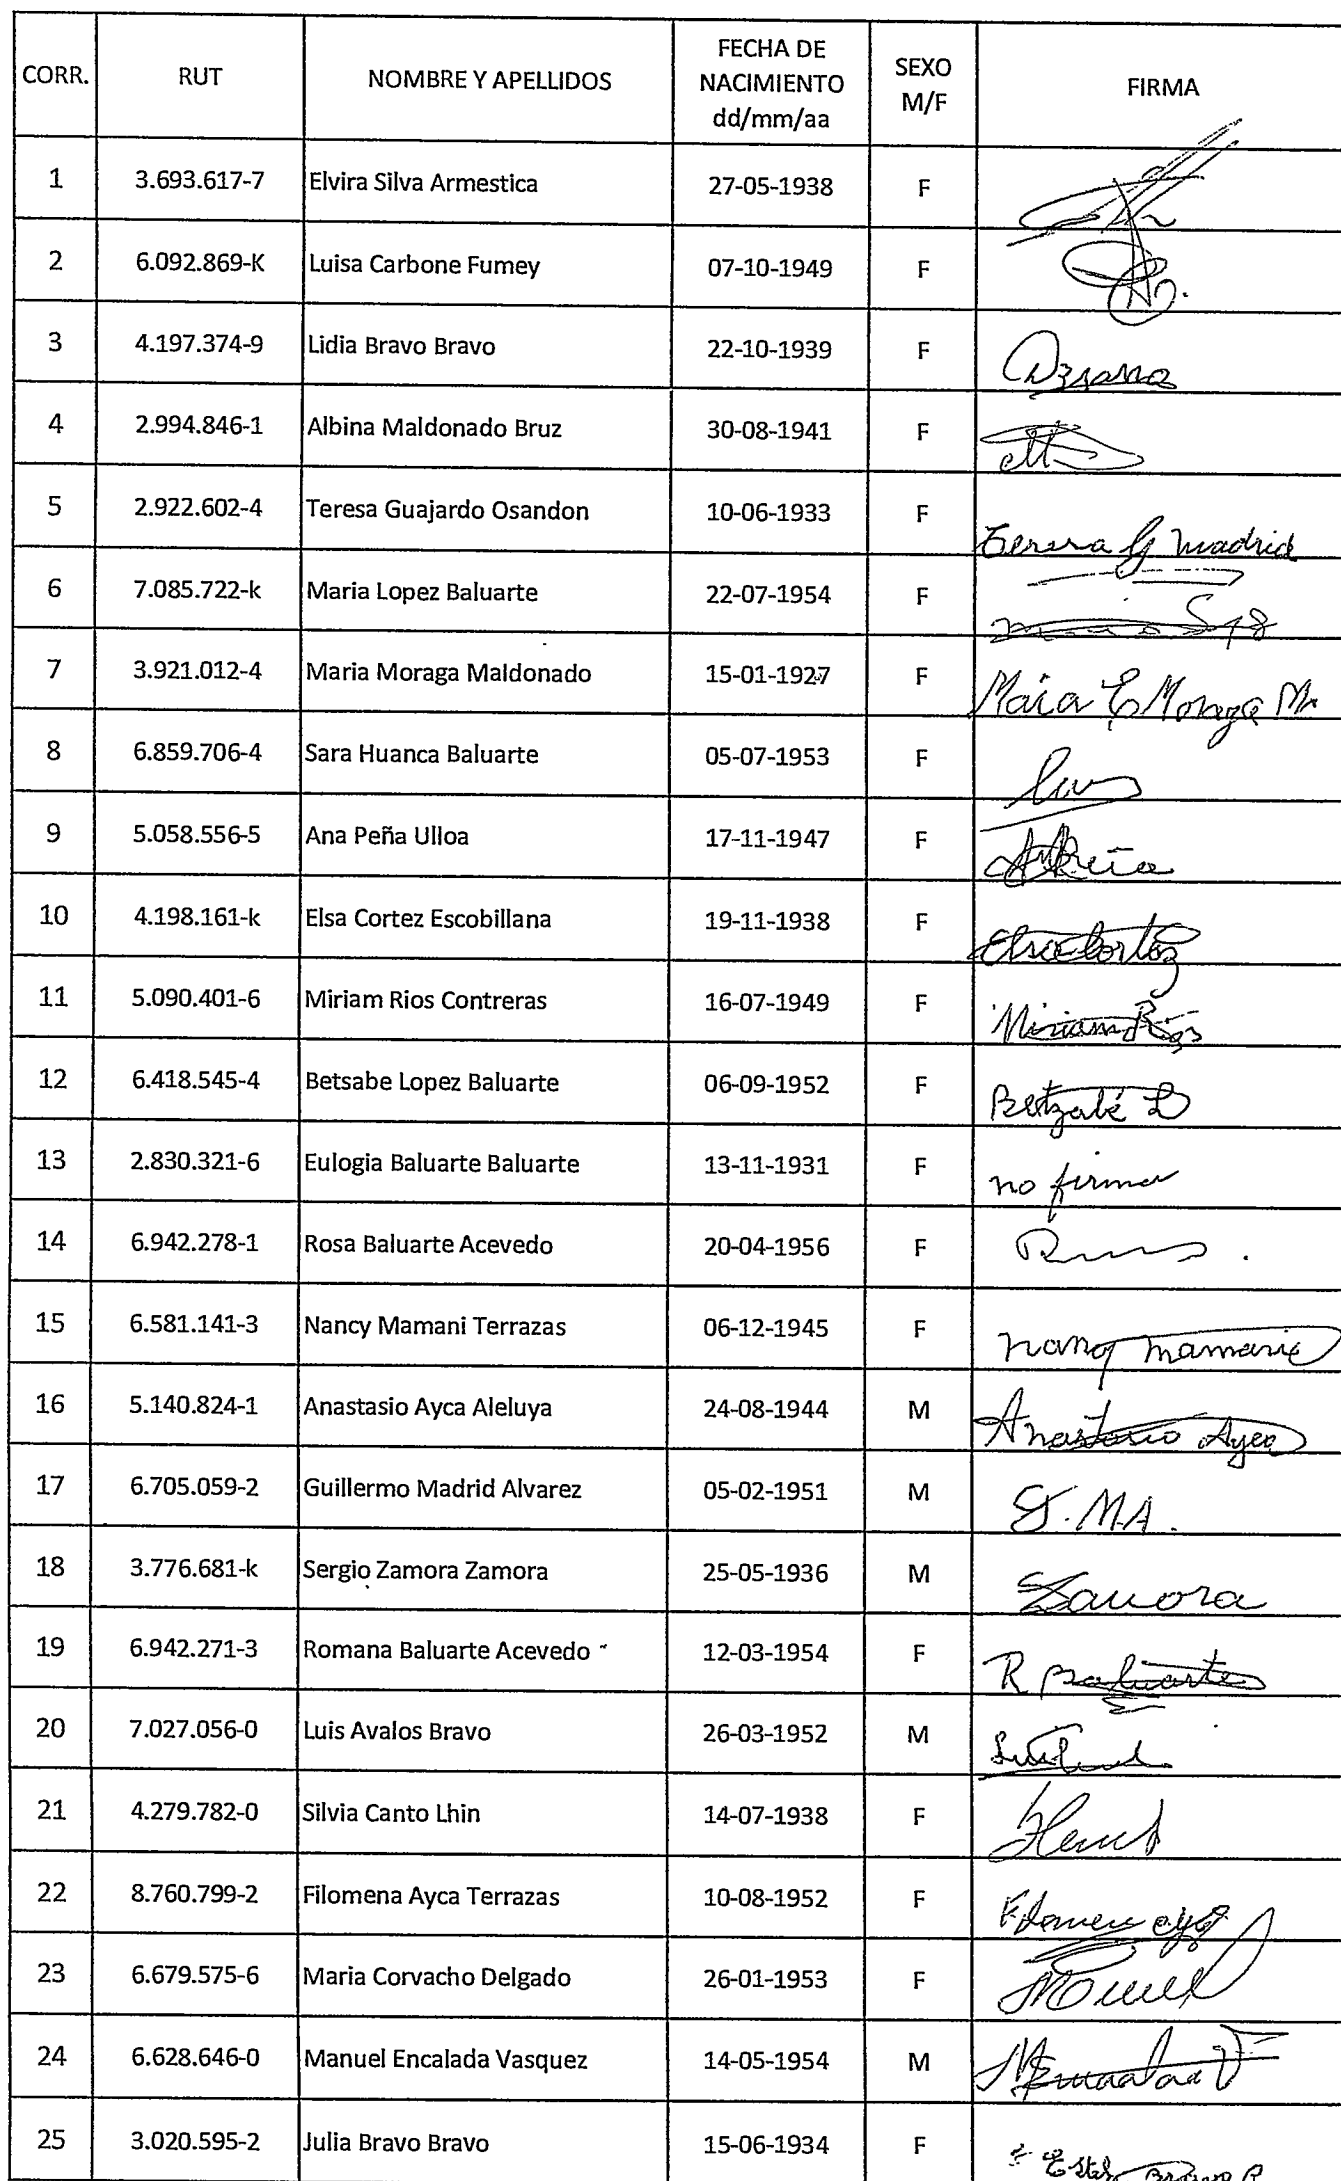 CORR. RUT NOMBRE Y APELLIDOS FECHA DE NACIMIENTO dd/mm/aa SEXO M/F FIRMA
1 3.693.617-7 Elvira Silva Armestica 27-05-1938 F
2 6.092.869-K Luisa Carbone Fumey 07-10-1949 F
3 4.197.374-9 Lidia Bravo Bravo 22-10-1939 F
4 2.994.846-1 Albina Maldonado Bruz 30-08-1941 F
5 2.922.602-4 Teresa Guajardo Osandon 10-06-1933 F Teresa G madrid
6 7.085.722-k Maria Lopez Baluarte 22-07-1954 F
7 3.921.012-4 Maria Moraga Maldonado 15-01-1927 F Maria E Moraga M
8 6.859.706-4 Sara Huanca Baluarte 05-07-1953 F
9 5.058.556-5 Ana Peña Ulloa 17-11-1947 F
10 4.198.161-k Elsa Cortez Escobillana 19-11-1938 F Elsa Cortez
11 5.090.401-6 Miriam Rios Contreras 16-07-1949 F Miriam Rios
12 6.418.545-4 Betsabe Lopez Baluarte 06-09-1952 F Betzabé L
13 2.830.321-6 Eulogia Baluarte Baluarte 13-11-1931 F no firma
14 6.942.278-1 Rosa Baluarte Acevedo 20-04-1956 F
15 6.581.141-3 Nancy Mamani Terrazas 06-12-1945 F nancy mamani
16 5.140.824-1 Anastasio Ayca Aleluya 24-08-1944 M Anastasio Ayca
17 6.705.059-2 Guillermo Madrid Alvarez 05-02-1951 M G.M.A.
18 3.776.681-k Sergio Zamora Zamora 25-05-1936 M Zamora
19 6.942.271-3 Romana Baluarte Acevedo 12-03-1954 F R Baluarte
20 7.027.056-0 Luis Avalos Bravo 26-03-1952 M
21 4.279.782-0 Silvia Canto Lhin 14-07-1938 F
22 8.760.799-2 Filomena Ayca Terrazas 10-08-1952 F
23 6.679.575-6 Maria Corvacho Delgado 26-01-1953 F
24 6.628.646-0 Manuel Encalada Vasquez 14-05-1954 M
25 3.020.595-2 Julia Bravo Bravo 15-06-1934 F